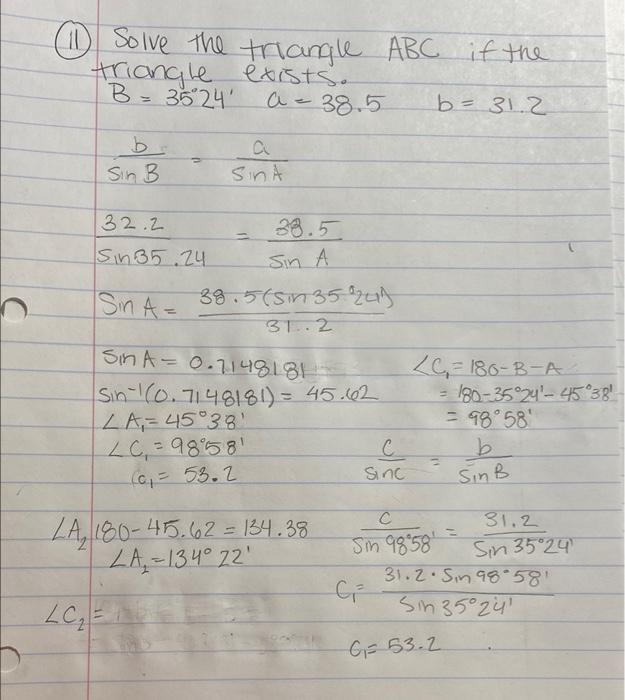 (11) Solve the triangle ABC if the
triangle exists.
B = 35°24' a = 38.5 b = 31.2
b/Sin B = a/Sin A
32.2/Sin 35.24 = 38.5/Sin A
Sin A = 38.5(Sin 35°24')/31..2
Sin A = 0.7148181
Sin⁻¹(0.7148181) = 45.62
∠A₁ = 45°38'
∠C₁ = 98°58'
C₁ = 53.2
∠A₂ 180-45.62 = 134.38
∠A₂ = 134° 22'
∠C₂ =
∠C₁ = 180-B-A
= 180-35°24'-45°38'
= 98°58'
C/Sin C = b/Sin B
C/Sin 98°58' = 31.2/Sin 35°24'
C₁ = 31.2 · Sin 98°58'/Sin 35°24'
C₁ = 53.2